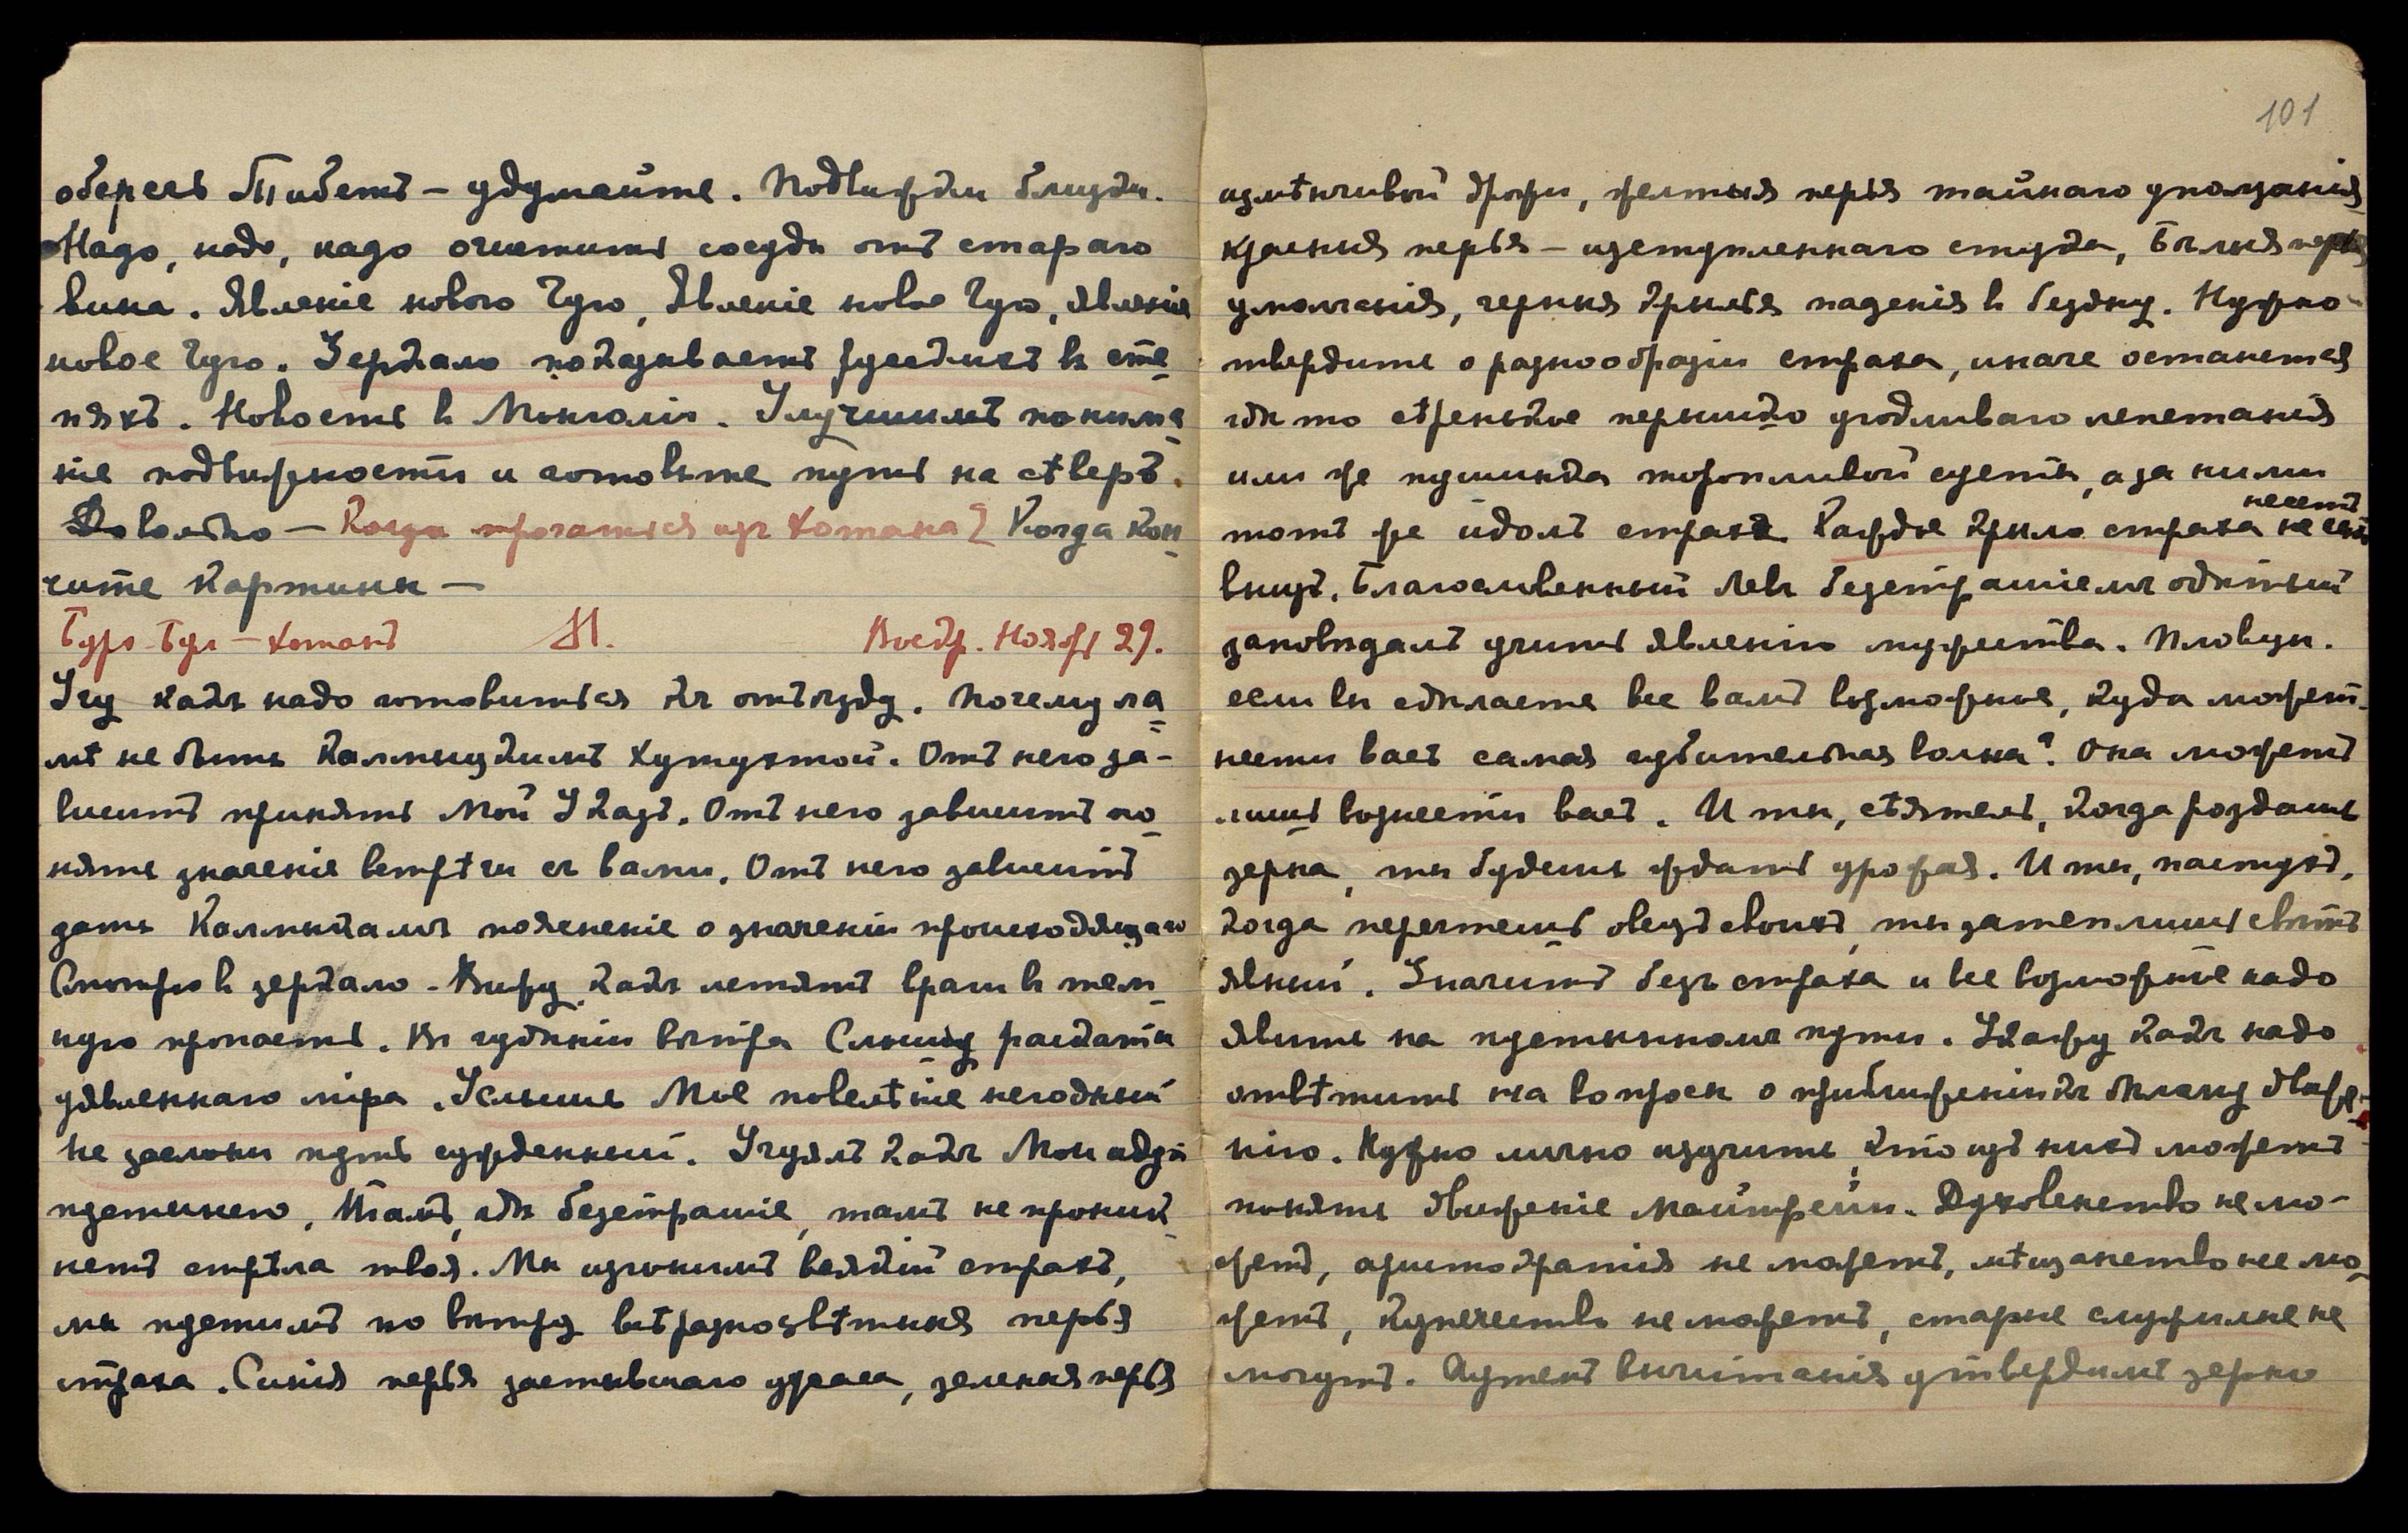 оберегъ Тибетъ – удумайте. Подвижки близки.
Надо, надо, надо очистить сосуды отъ стараго
вина. Явленіе нового Чую, Явленіе новое Чую, явленіе
новое Чую. Зеркало показываетъ русскихъ въ сте
пяхъ. Новость в Монголіи. Улучшимъ понима
ніе подвижности и готовьте путь на сѣверъ.
Довольно – Когда трогаться изъ Хотана? Когда Кон
чите Картины –
Бурх-Бул – Хотанъ М. Воскр. Нояб 29.
Учу какъ надо готовиться къ отъѣзду. Почему ла
мѣ не быть Калмыцкимъ Хутухтой. Отъ него за-
виситъ принять Мой Указъ. Отъ него зависитъ по
нять значеніе встрѣчи съ вами. Отъ него зависитъ
дать Калмыкамъ поясненіе о значеніи происходящаго
Смотрю въ зеркало. Вижу какъ летятъ враги въ тем
ную пропасть. Въ гудѣніи вѣтра Слышу раскаты
уявленнаго міра. Услышь Мое повелѣніе негодный
не заслони путь сужденный. Учуялъ какъ Мои идутъ
пустынею. Тамъ, гдѣ безстрашіе, тамъ не проник
нетъ стрѣла твоя. Мы изгонимъ всякій страхъ,
мы пустимъ по вѣтру всѣ разноцвѣтныя перья
страха. Синія перья застывшаго ужаса, зеленыя перья
101
измѣнчивой дрожи, желтыя перья тайнаго уползанія
красныя перья – изступленнаго стука, бѣлыя перья
умолчанія, черныя крылья паденія въ бездну. Нужно
твердить о разнообразіи страха, иначе останется
гдѣ то сѣренькое перышко угодливаго лепетанія
или же пушинка торопливой суеты, а за ними
несетъ
тотъ же идолъ страха. Каждое крыло страха несетъ
внизъ. Благословенный Левъ безстрашіемъ одѣтый
заповѣдалъ учить явленію мужества. Пловцы.
если вы сдѣлаете все вамъ возможное, куда можетъ
нести васъ самая губительная волна? Она можетъ
лишь вознести васъ. И ты, сѣятель, когда раздашь
зерна, ты будешь ждать урожая. И ты, пастухъ,
когда перечтешь овецъ своихъ, ты затеплишь свѣтъ
явный. Значитъ безъ страха и все возможное надо
явить на пустынномъ пути. Укажу какъ надо
отвѣтить на вопросы о приближеніи къ бѣлому движе
нію. Нужно лично изучить, кто изъ нихъ можетъ
понять движеніе Майтрейи. Духовенство не мо-
жетъ, аристократія не можетъ, мѣщанство не мо
жетъ, купечество не можетъ, старые служилые не
могутъ. Путемъ вычитанія утвердимъ зерно